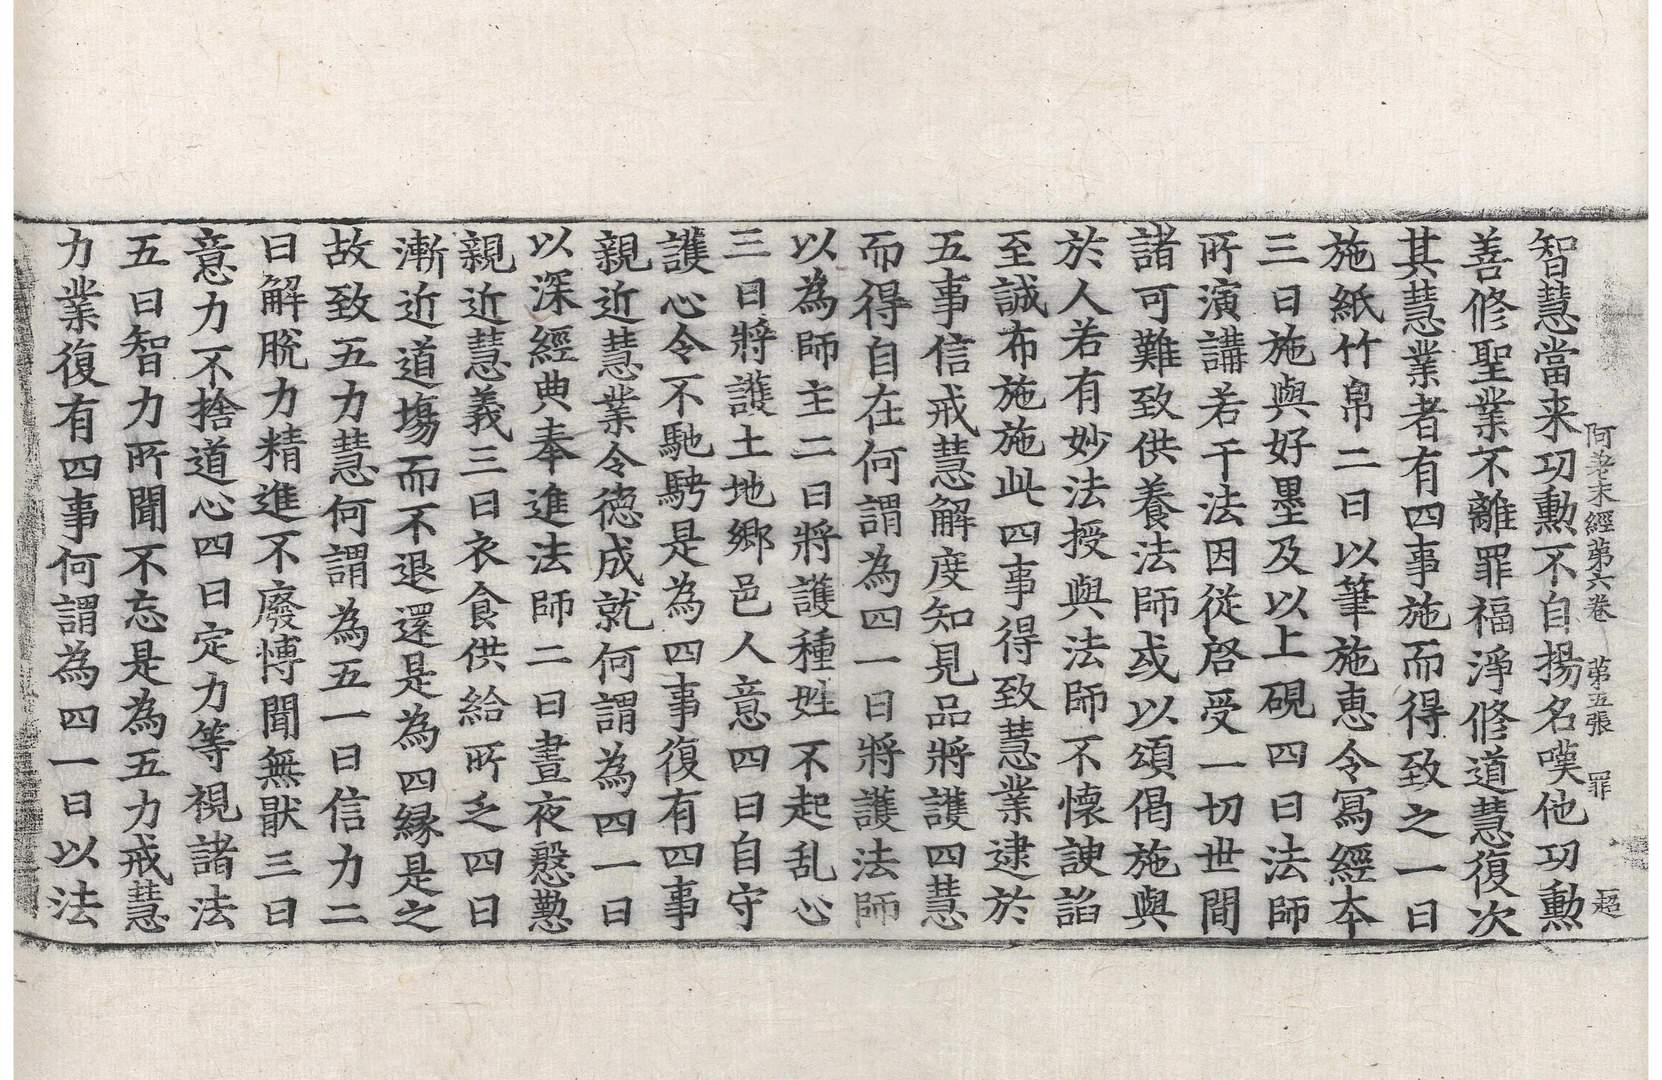 阿差末經第六卷　第五張　罪　超
智慧當来功勳不自揚名嘆他功勳
善修聖業不離罪福淨修道慧復次
其慧業者有四事施而得致之一曰
施紙竹帛二曰以筆施恵令寫經本
三曰施與好墨及以上硯四曰法師
所演講若干法因從啓受一切世間
諸可難致供養法師或以頌偈施與
於人若有妙法授與法師不懷諛諂
至誠布施施此四事得致慧業逮於
五事信戒慧解度知見品將護四慧
而得自在何謂為四一曰將護法師
以為師主二曰將護種姓不起乱心
三曰將護土地鄉邑人意四曰自守
護心令不馳騁是為四事復有四事
親近慧業令德成就何謂為四一曰
以深經典奉進法師二曰晝夜慇懃
親近慧義三曰衣食供給所乏四曰
漸近道場而不退還是為四縁是之
故致五力慧何謂為五一曰信力二
曰解脫力精進不廢博聞無猒三曰
意力不捨道心四曰定力等視諸法
五曰智力所聞不忘是為五力戒慧
力業復有四事何謂為四一曰以法